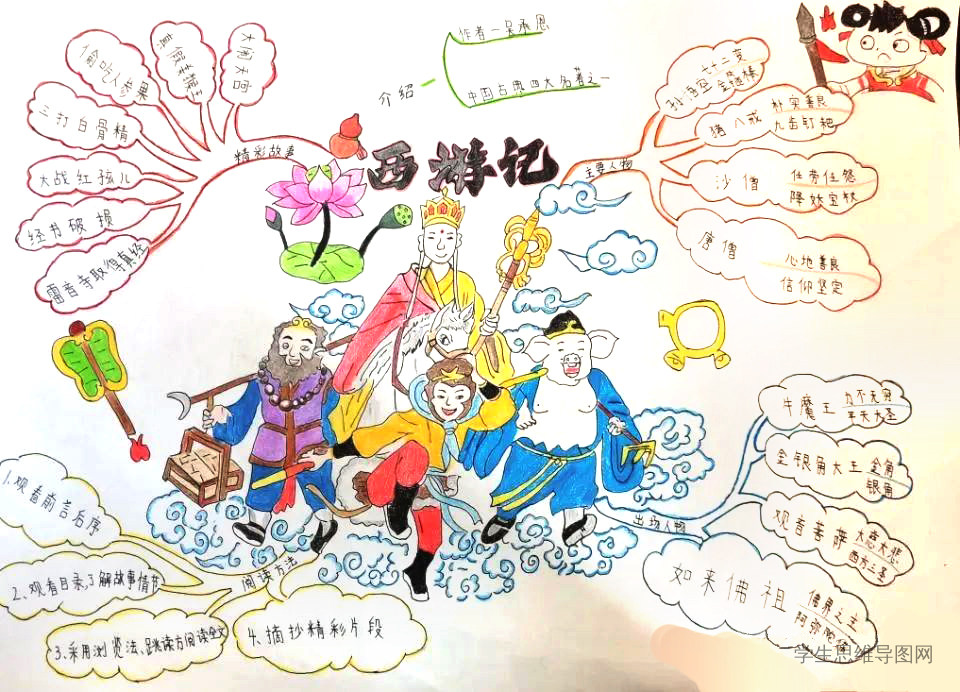 西游记
介绍
作者—吴承恩
中国古典四大名著之一
精彩故事
大闹天宫
真假美猴王
偷吃人参果
三打白骨精
大战红孩儿
经书破损
雷音寺取得真经
主要人物
孙悟空
七十二变
金箍棒
猪八戒
朴实善良
九齿钉耙
沙僧
任劳任怨
降妖宝杖
唐僧
心地善良
信仰坚定
出场人物
牛魔王
力大无穷
平天大圣
金银角大王
金角
银角
观音菩萨
大慈大悲
西方三圣
如来佛祖
佛界之主
阅读方法
1.观看前言后序
2、观看目录,了解故事情节
3、采用浏览法、跳读方阅读全文
4、摘抄精彩片段
学生思维导图网